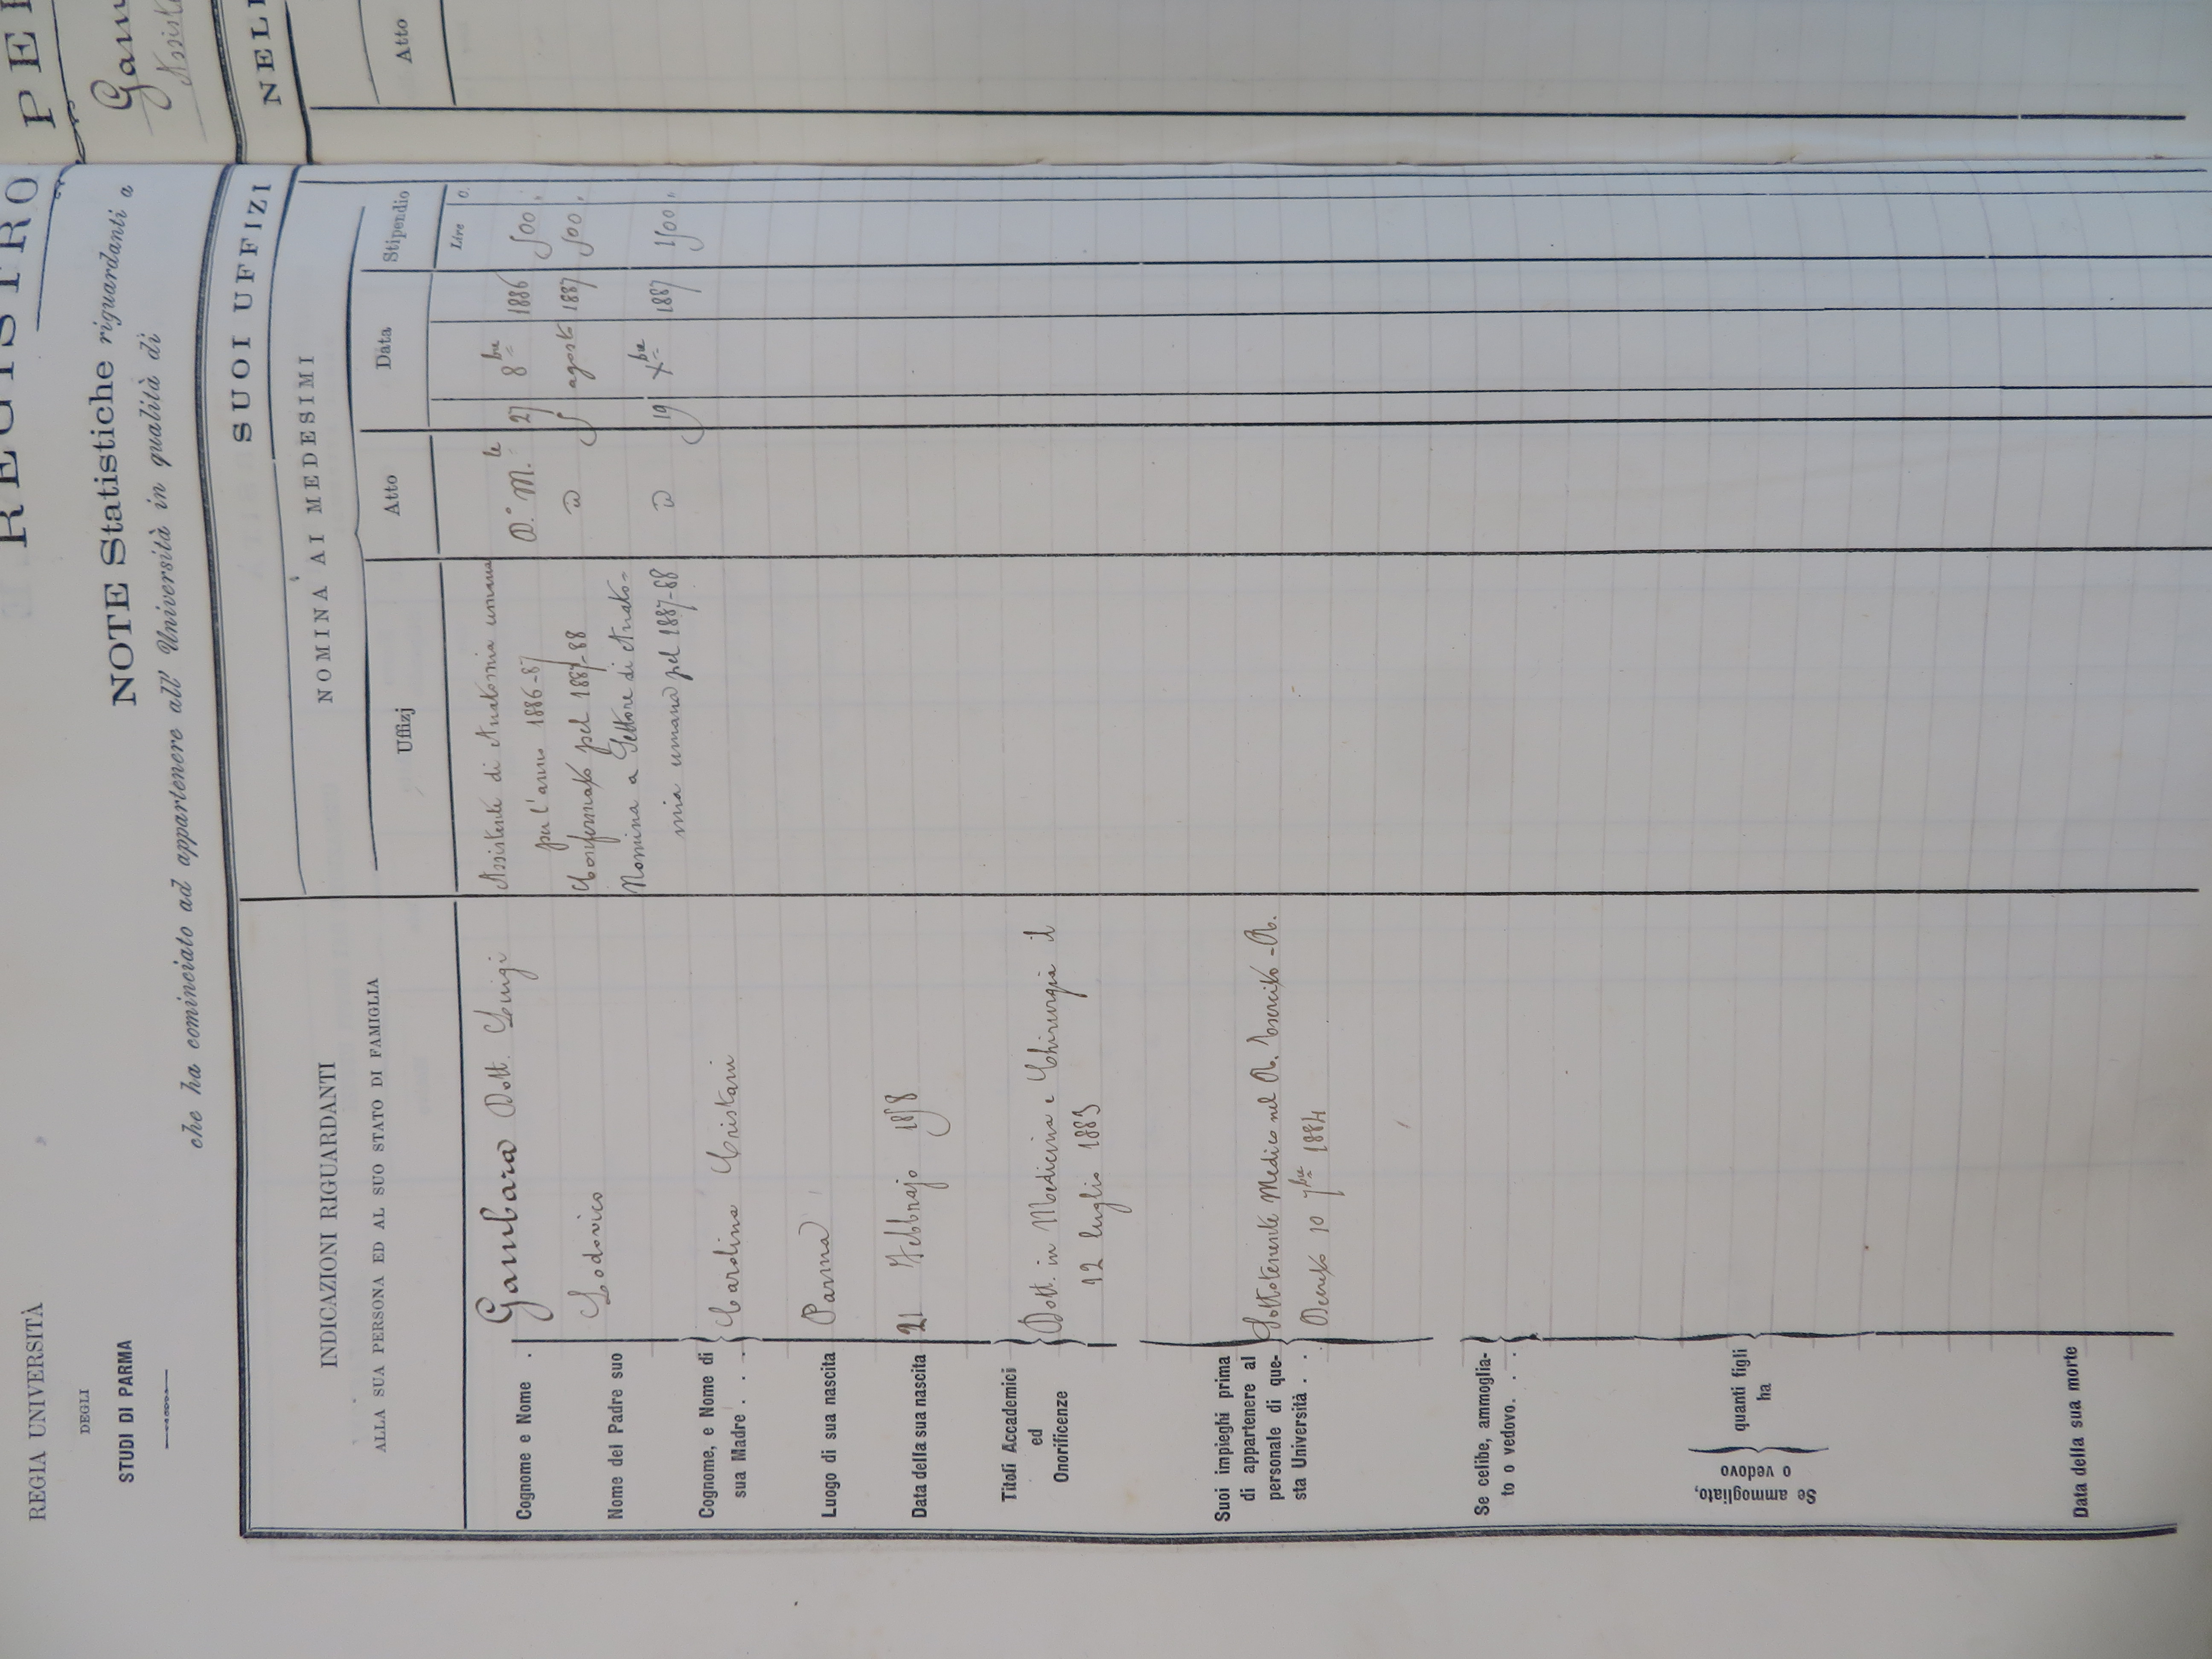 REGISTRO
PE
REGIA UNIVERSITÀ
DEGLI
STUDI DI PARMA
NOTE Statistiche riguardanti a
Gam
che ha cominciato ad appartenere all' Università in qualità di
Assiste
INDICAZIONI RIGUARDANTI
ALLA SUA PERSONA ED AL SUO STATO DI FAMIGLIA
SUOI UFFIZI
NEL
NOMINA AI MEDESIMI
Uffizj
Atto
Data
Stipendio
Atto
Lire
Cognome e Nome .
Gambara Dott. Luigi
Nome del Padre suo
Lodovico
Cognome, e Nome di
sua Madre . . .
Carolina Cristani
Luogo di sua nascita
Parma
Data della sua nascita
21 Febbrajo 1858
Titoli Accademici
ed
Onorificenze
Dott. in Medicina e Chirurgia il
12 luglio 1883
Suoi impieghi prima
di appartenere al
personale di que-
sta Università . .
Sottotenente Medico nel R. Esercito - R.
Decreto 10 7bre 1884
Se celibe, ammoglia-
to o vedovo. . .
Se ammogliato,
o vedovo
quanti figli
ha
Data della sua morte
Assistente di Anatomia umana
per l'anno 1886-87
D.° M.le 27 8bre 1886 500 "
Confermato pel 1887-88
D 5 agosto 1887 500 "
Nomina a Settore di Anato-
mia umana pel 1887-88
D 19 Xbre 1887 1500 "